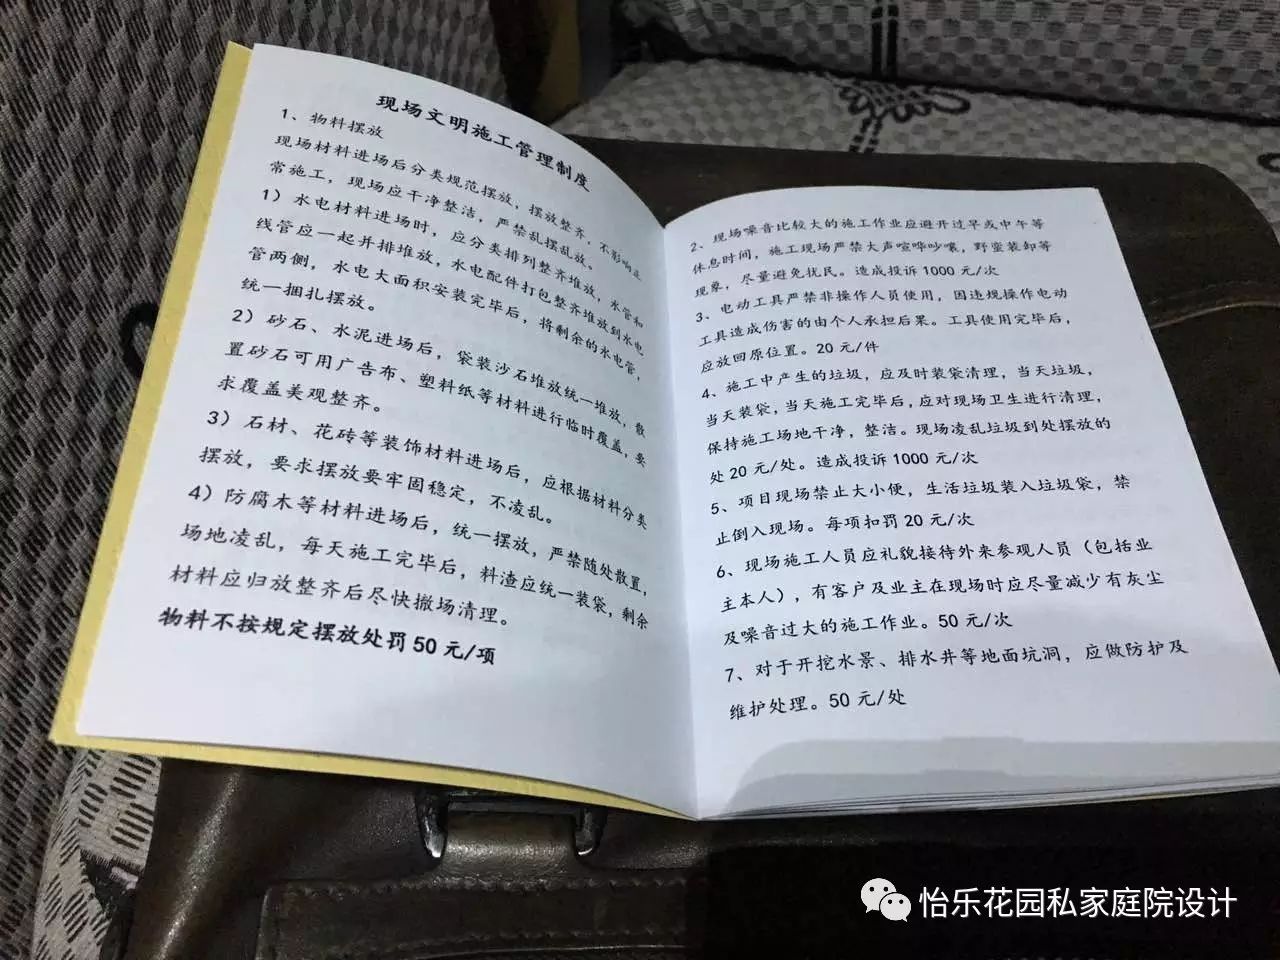 现场文明施工管理制度
1、物料摆放
现场材料进场后分类规范摆放，摆放整齐，不影响正
常施工，现场应干净整洁，严禁乱摆乱放。
1）水电材料进场时，应分类排列整齐堆放，水管和
线管应一起并排堆放，水电配件打包整齐堆放到水电
管两侧，水电大面积安装完毕后，将剩余的水电管，
统一捆扎摆放。
2）砂石、水泥进场后，袋装沙石堆放统一堆放，散
置砂石可用广告布、塑料纸等材料进行临时覆盖，要
求覆盖美观整齐。
3）石材、花砖等装饰材料进场后，应根据材料分类
摆放，要求摆放要牢固稳定，不凌乱。
4）防腐木等材料进场后，统一摆放，严禁随处散置，
场地凌乱，每天施工完毕后，料渣应统一装袋，剩余
材料应归放整齐后尽快撤场清理。
物料不按规定摆放处罚50元/项
2、现场噪音比较大的施工作业应避开过早或中午等
休息时间，施工现场严禁大声喧哗吵嚷，野蛮装卸等
现象，尽量避免扰民。造成投诉1000元/次
3、电动工具严禁非操作人员使用，因违规操作电动
工具造成伤害的由个人承担后果。工具使用完毕后，
应放回原位置。20元/件
4、施工中产生的垃圾，应及时装袋清理，当天垃圾，
当天装袋，当天施工完毕后，应对现场卫生进行清理，
保持施工场地干净，整洁。现场凌乱垃圾到处摆放的
处20元/处。造成投诉1000元/次
5、项目现场禁止大小便，生活垃圾装入垃圾袋，禁
止倒入现场。每项扣罚20元/次
6、现场施工人员应礼貌接待外来参观人员（包括业
主本人），有客户及业主在现场时应尽量减少有灰尘
及噪音过大的施工作业。50元/次
7、对于开挖水景、排水井等地面坑洞，应做防护及
维护处理。50元/处
怡乐花园私家庭院设计